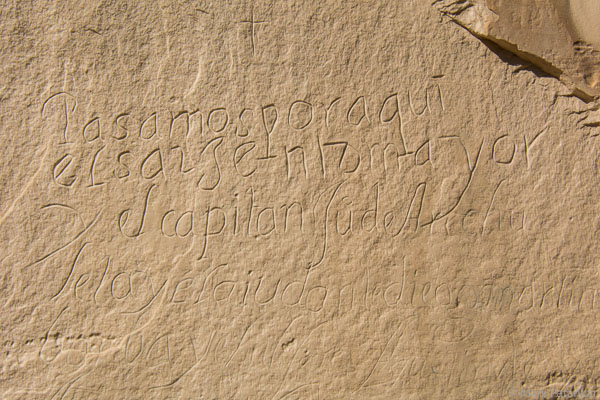 Pasamos por aqui
el sarjento mayor
y el capitan Ju de Archu
leta y el aiudante diego martin
y el